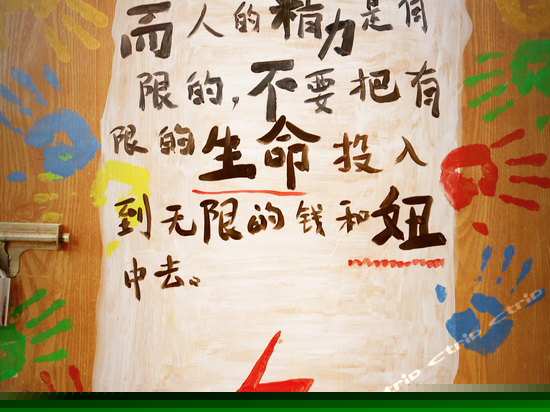 而人的精力是有
限的,不要把有
限的生命投入
到无限的钱和妞
中去。
ctrip ctrip ctrip